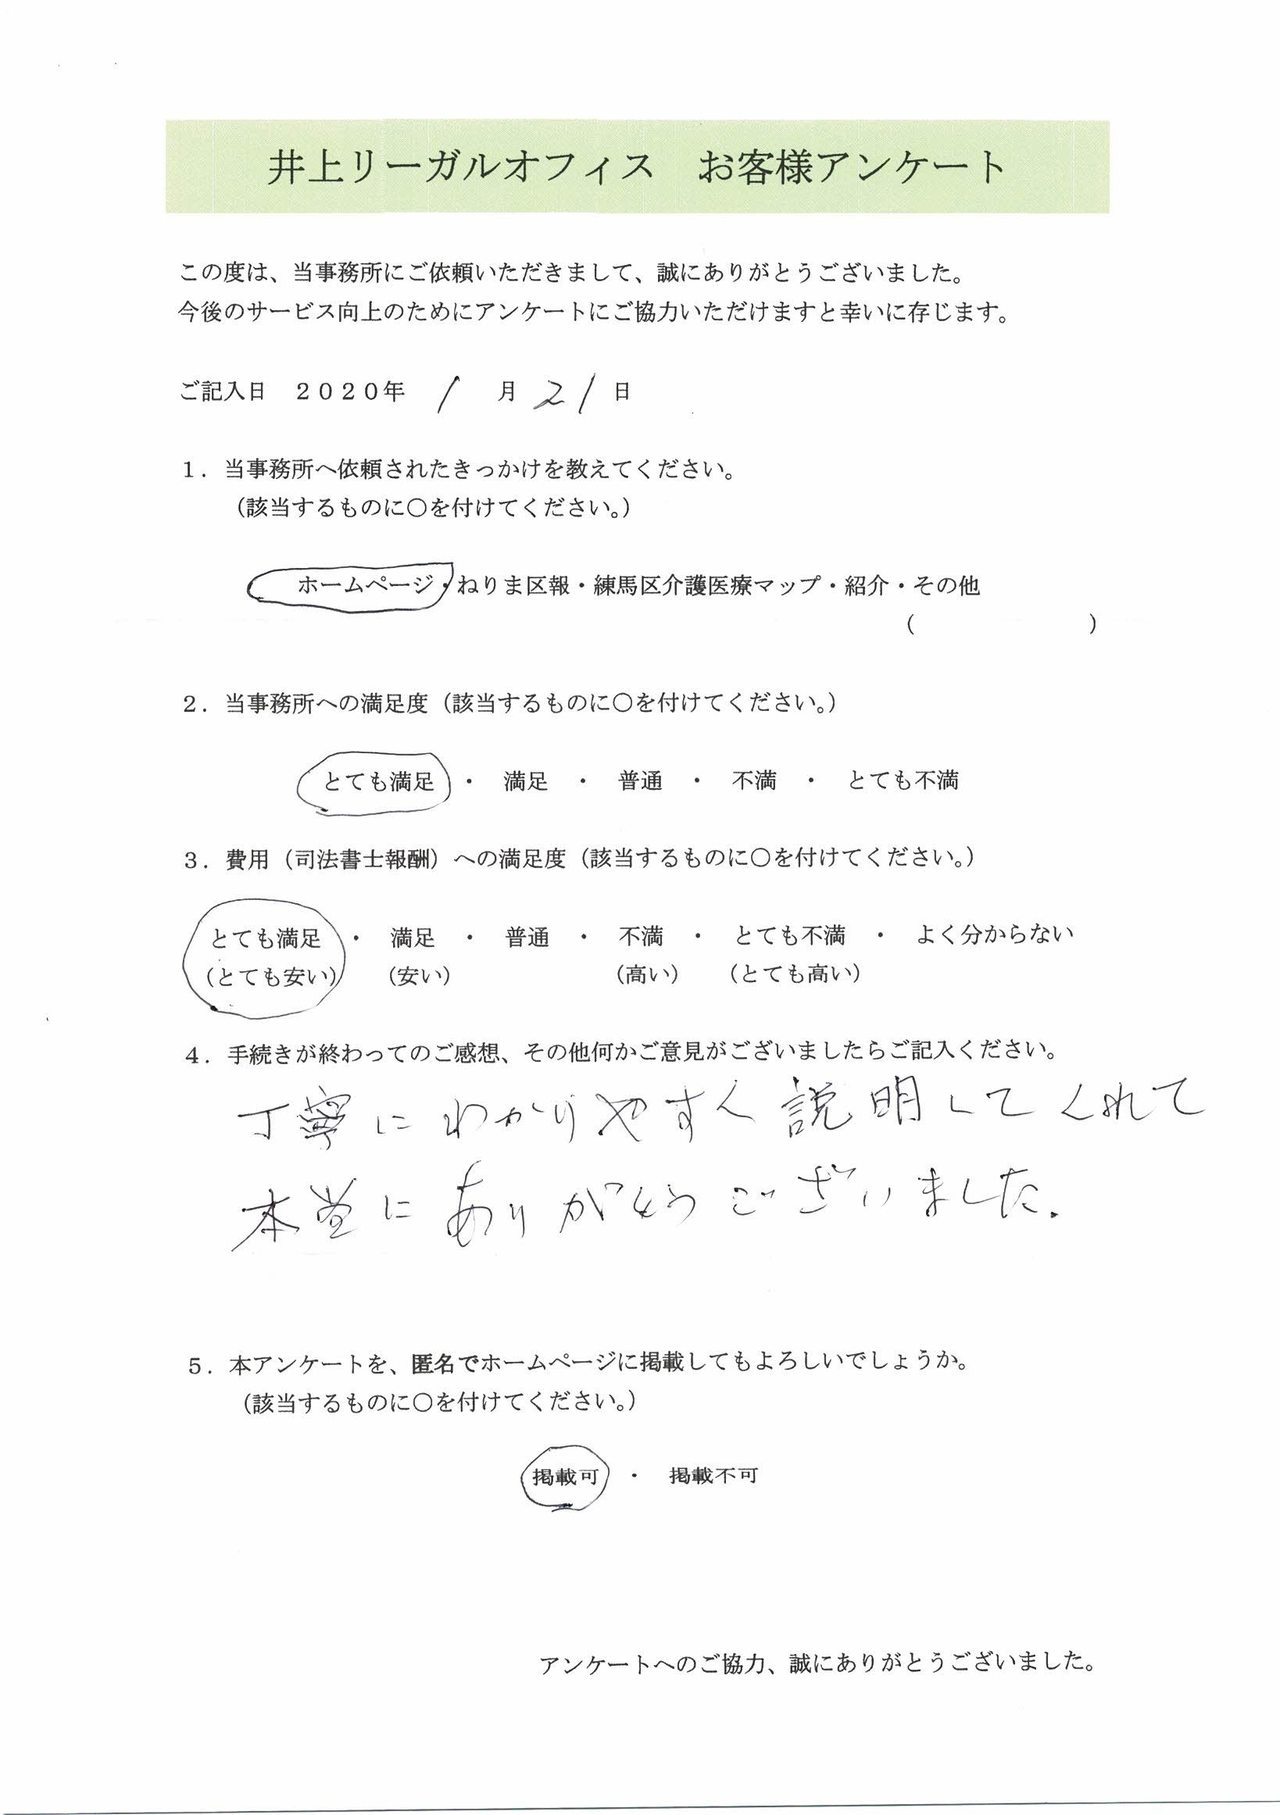 井上リーガルオフィス　お客様アンケート
この度は、当事務所にご依頼いただきまして、誠にありがとうございました。
今後のサービス向上のためにアンケートにご協力いただけますと幸いに存じます。
ご記入日　２０２０年　1　月　21　日
１．当事務所へ依頼されたきっかけを教えてください。
（該当するものに〇を付けてください。）
ホームページ・ねりま区報・練馬区介護医療マップ・紹介・その他
（　　　　　　　）
２．当事務所への満足度（該当するものに〇を付けてください。）
とても満足　・　満足　・　普通　・　不満　・　とても不満
３．費用（司法書士報酬）への満足度（該当するものに〇を付けてください。）
とても満足　・　満足　・　普通　・　不満　・　とても不満　・　よく分からない
（とても安い）　（安い）　（高い）　（とても高い）
４．手続きが終わってのご感想、その他何かご意見がございましたらご記入ください。
丁寧にわかりやすく説明してくれて
本当にありがとうございました.
５．本アンケートを、匿名でホームページに掲載してもよろしいでしょうか。
（該当するものに〇を付けてください。）
掲載可　・　掲載不可
アンケートへのご協力、誠にありがとうございました。